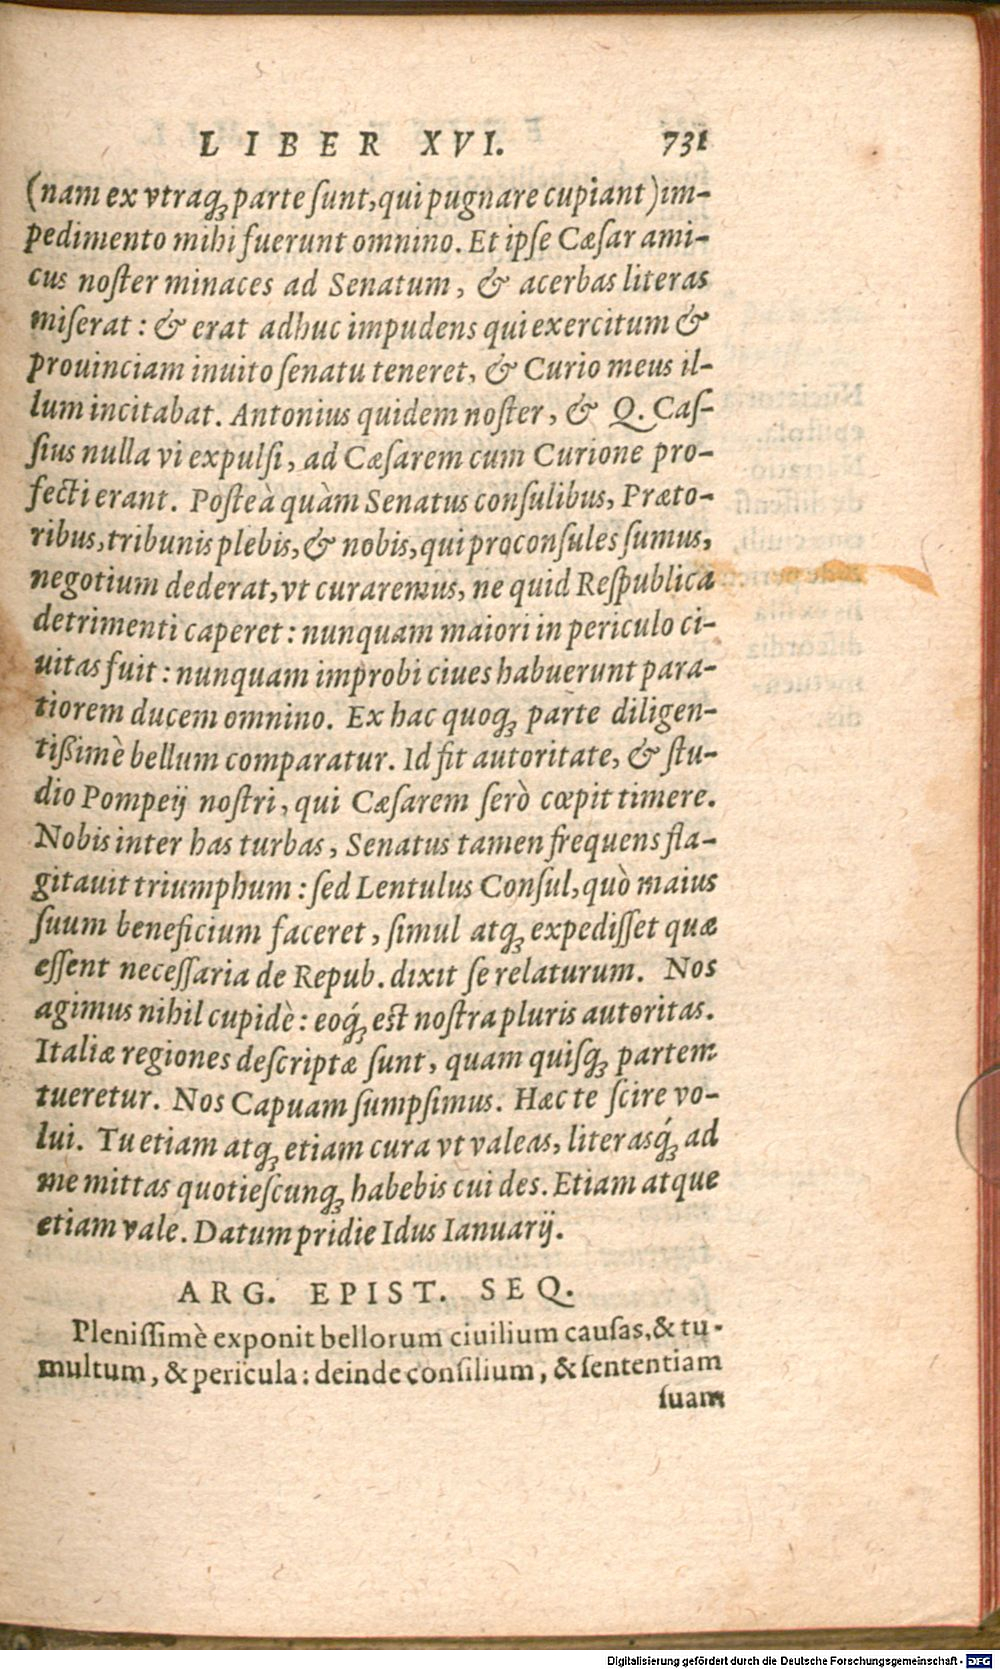 LIBER XVI. 731
(nam ex vtraq́ꝫ parte ſunt, qui pugnare cupiant) im-
pedimento mihi fuerunt omnino. Et ipſe Cæſar ami-
cus noſter minaces ad Senatum, & acerbas literas
miſerat: & erat adhuc impudens qui exercitum &
prouinciam inuito ſenatu teneret, & Curio meus il-
lum incitabat. Antonius quidem noſter, & Q. Caſ-
ſius nulla vi expulſi, ad Cæſarem cum Curione pro-
fecti erant. Poſteà quàm Senatus conſulibus, Præto-
ribus, tribunis plebis, & nobis, qui proconſules ſumus,
negotium dederat, vt curaremus, ne quid Reſpublica
detrimenti caperet: nunquam maiori in periculo ci-
uitas fuit: nunquam improbi ciues habuerunt para-
tiorem ducem omnino. Ex hac quoqꝫ parte diligen-
tißimè bellum comparatur. Id fit autoritate, & ſtu-
dio Pompeij noſtri, qui Cæſarem ſerò cœpit timere.
Nobis inter has turbas, Senatus tamen frequens fla-
gitauit triumphum: ſed Lentulus Conſul, quò maius
ſuum beneficium faceret, ſimul atqꝫ expediſſet quæ
eſſent neceſſaria de Repub. dixit ſe relaturum. Nos
agimus nihil cupidè: eoq́ꝫ eſt noſtra pluris autoritas.
Italiæ regiones deſcriptæ ſunt, quam quiſqꝫ partem
tueretur. Nos Capuam ſumpſimus. Hæc te ſcire vo-
lui. Tu etiam atqꝫ etiam cura vt valeas, literasq́ꝫ ad
me mittas quotieſcunqꝫ habebis cui des. Etiam atque
etiam vale. Datum pridie Idus Ianuarij.
ARG. EPIST. SEQ.
Pleniſſimè exponit bellorum ciuilium cauſas, & tu-
multum, & pericula: deinde conſilium, & ſententiam
ſuam
Digitalisierung gefördert durch die Deutsche Forschungsgemeinschaft - DFG